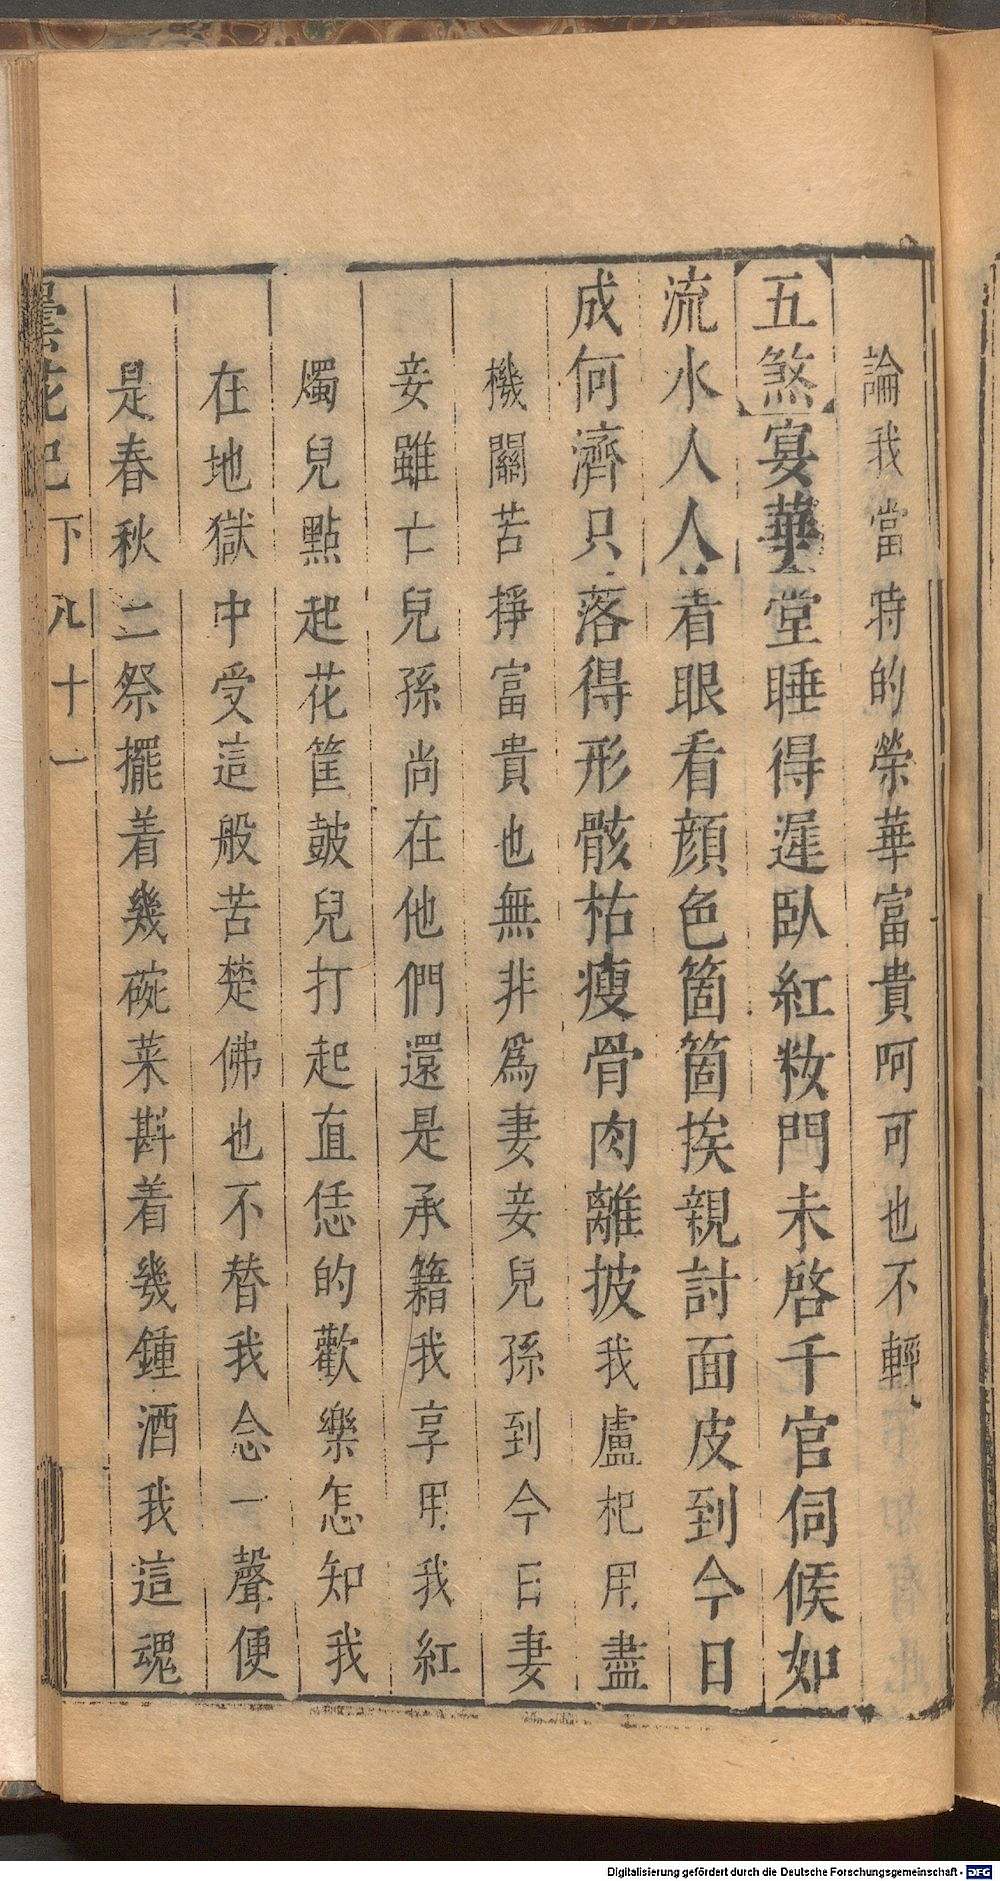 論我當時的榮華富貴呵可也不輕
五煞宴華堂睡得遲臥紅粧門未啓千官伺候如
流水人人着眼看顔色箇箇挨親討面皮到今日
成何濟只落得形骸枯瘦骨肉離披我盧杞用盡
機關苦掙富貴也無非爲妻妾兒孫到今日妻
妾雖亡兒孫尚在他們還是承籍我享用我紅
燭兒點起花筐鼓兒打起直恁的歡樂怎知我
在地獄中受這般苦楚佛也不替我念一聲便
是春秋二祭擺着幾碗菜斟着幾鍾酒我這魂
曇花記 下 八十一
Digitalisierung gefördert durch die Deutsche Forschungsgemeinschaft - DFG